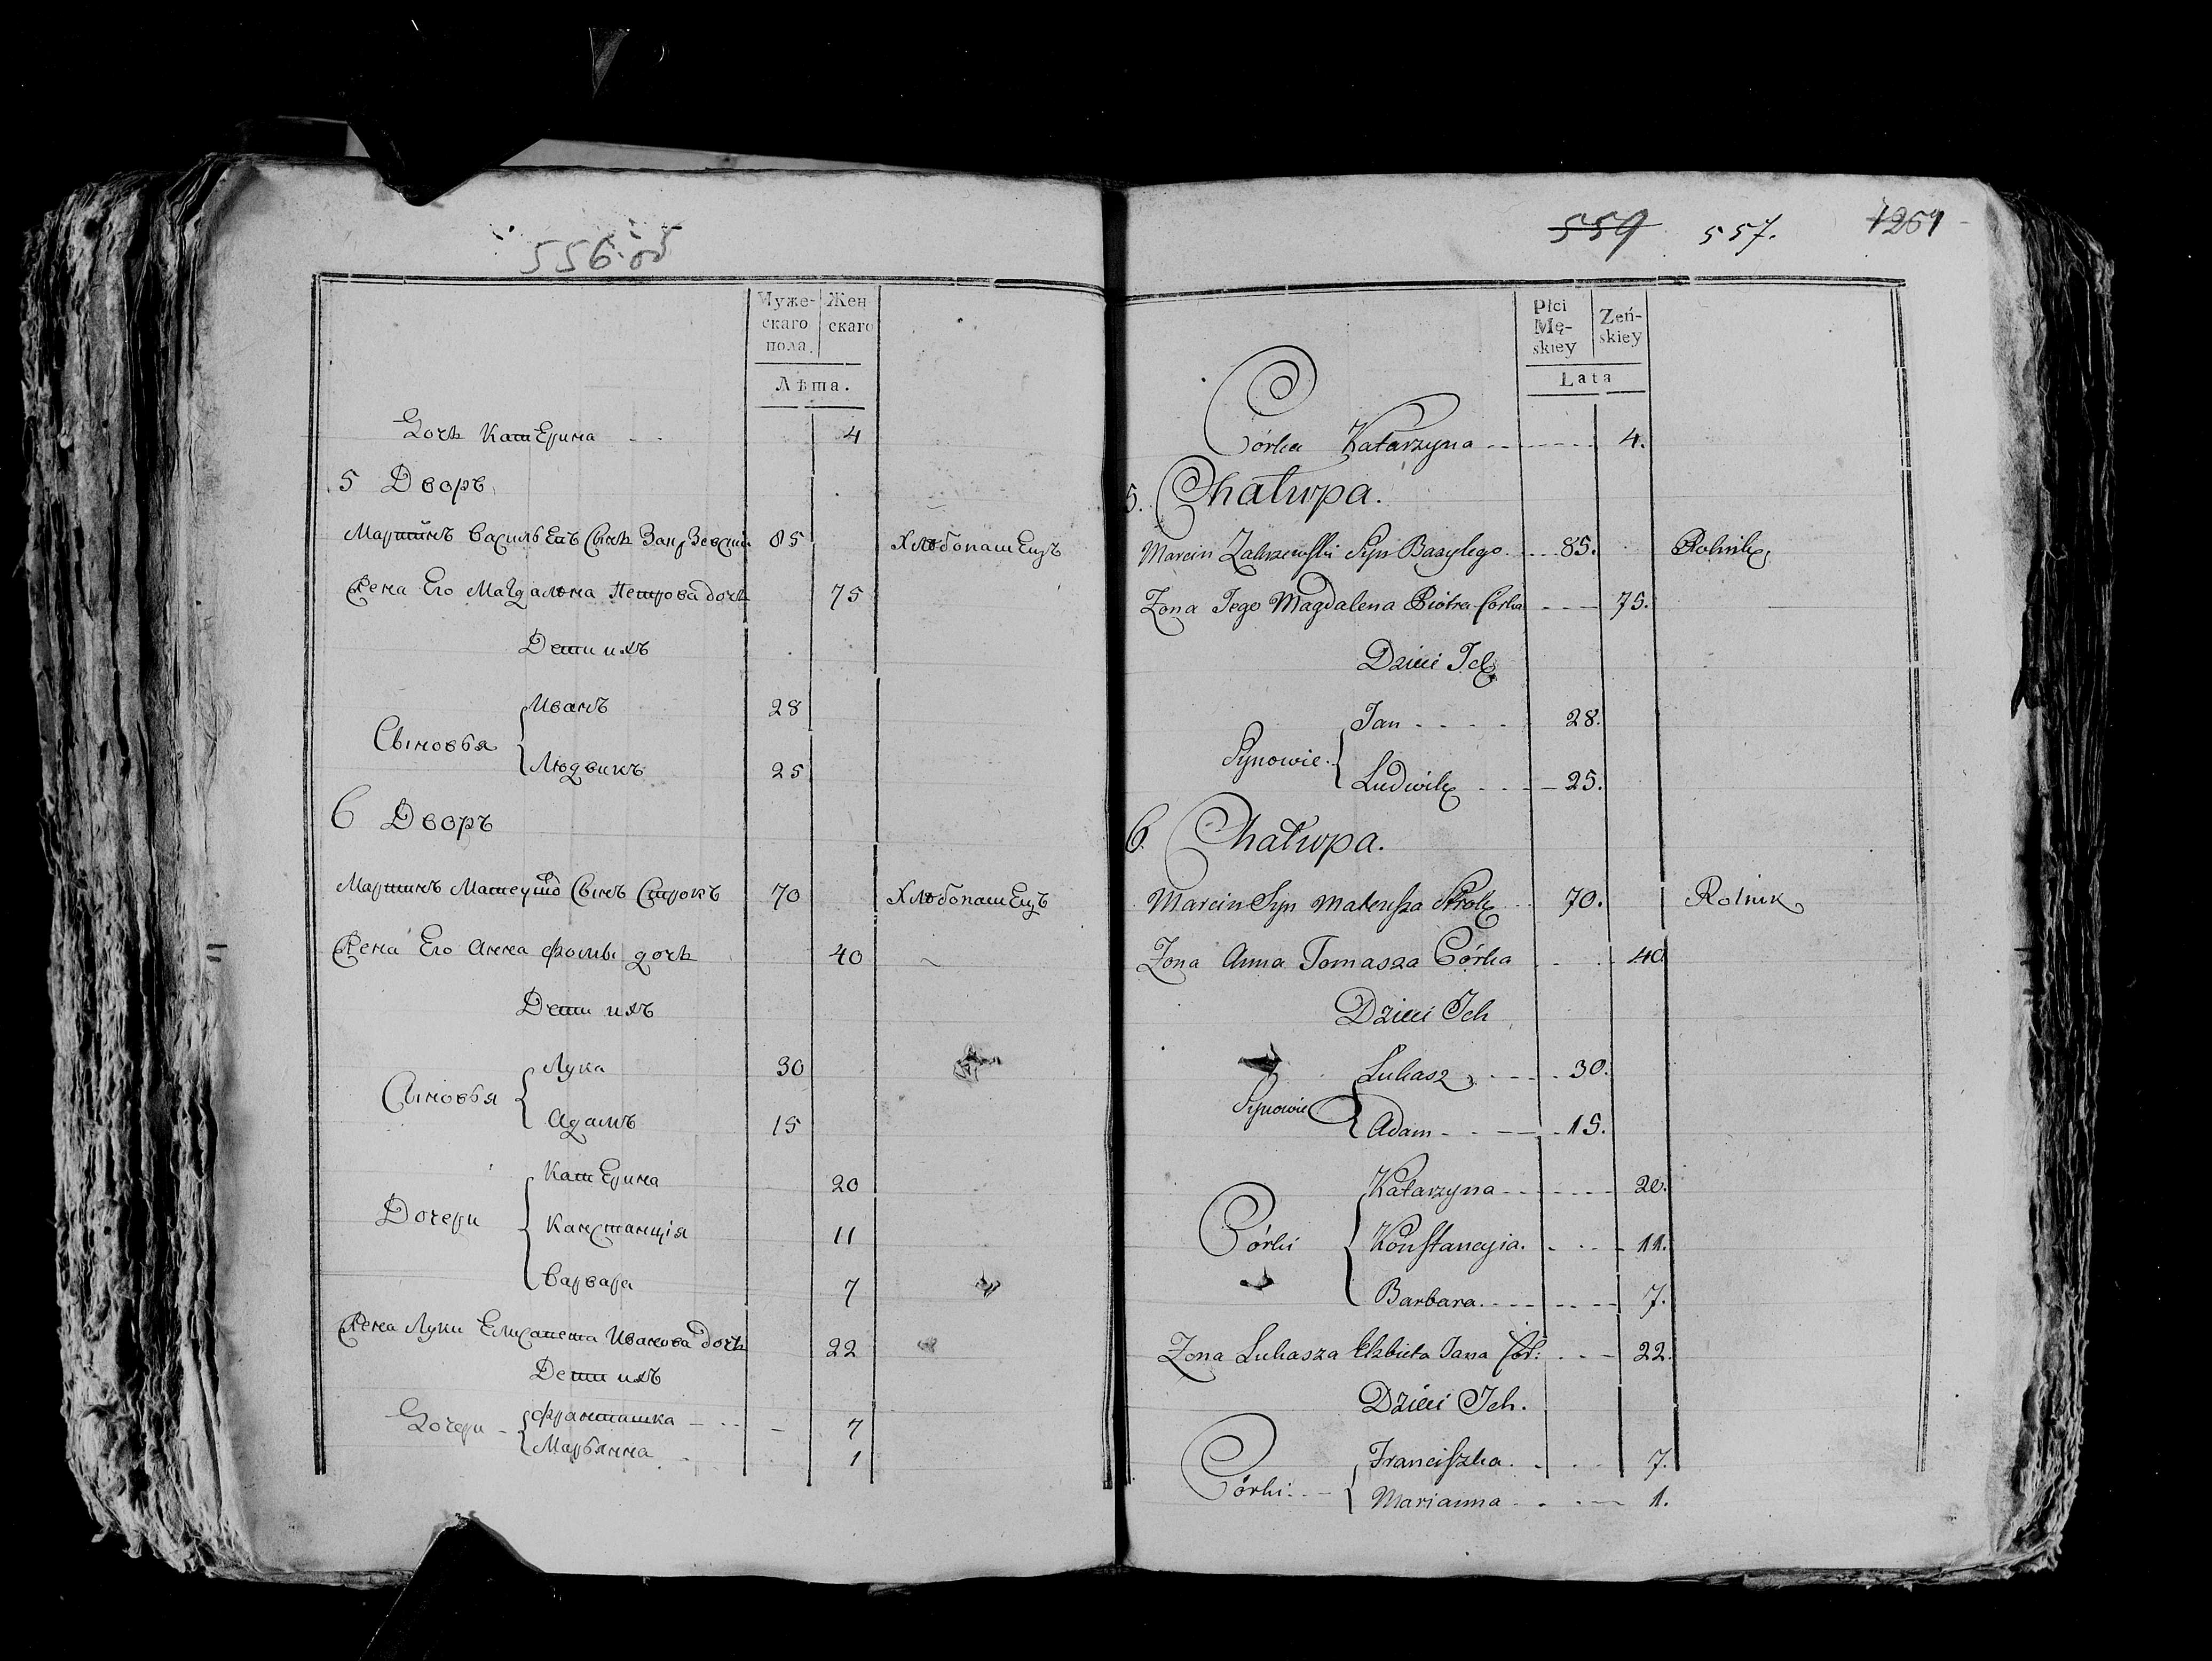 556 об
Муже-
скаго
пола.
Жен
скаго
Лѣта.
Дочь Катерина 4
5 Дворъ
Мартинъ Васильевъ Сынъ 85 Хлѣбопашецъ
Жена Его Магдалѣна Петрова дочь 75
Дети ихъ
Сыновья
Иванъ 28
Людвикъ 25
6 Дворъ
Мартинъ Сынъ Строкъ 70 Хлѣбопашецъ
Жена Его Анна Фомы дочь 40
Дети ихъ
Сыновья
Лука 30
Адамъ 15
Дочери
Катерина 20
Канстанція 11
Варвара 7
Жена Луки Елисапета Иванова дочь 22
Дети ихъ
Дочери
7
Марьянна 1
559 557. 1261
Płci
Mę-
skiey
Zeń-
skiey
Lata
Córka Katarzyna 4.
5. Chałupa.
Marcin Zakrzewski Syn Bazylego 85. Rolnik
Zona Jego Magdalena Piotra Corka 75.
Dzieci Ich
Synowie
Jan 28.
Ludwik 25.
6. Chałupa.
Marcin Syn Mateusza Strok 70. Rolnik
Zona Anna Tomasza Córka 40
Dzieci Ich
Synowie
Lukasz 30.
Adam 15.
Córki
Katarzyna 20.
Konstancyia. 11.
Barbara. 7.
Zona Lukasza Elzbieta Jana Cór: 22.
Dzieci Ich.
Córki.
Franciszka. 7.
Marianna 1.